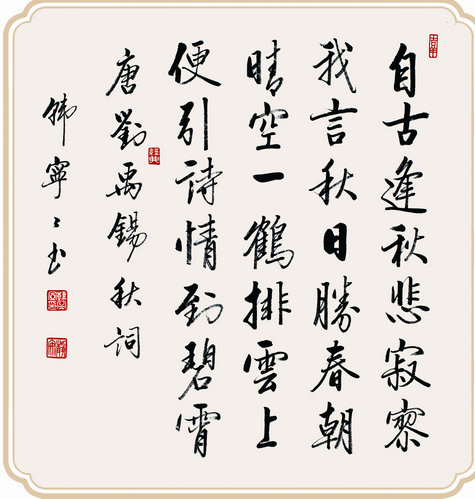 自古逢秋悲寂寥
我言秋日勝春朝
晴空一鶴排雲上
便引詩情到碧霄
唐劉禹錫秋詞
韓寧寧書